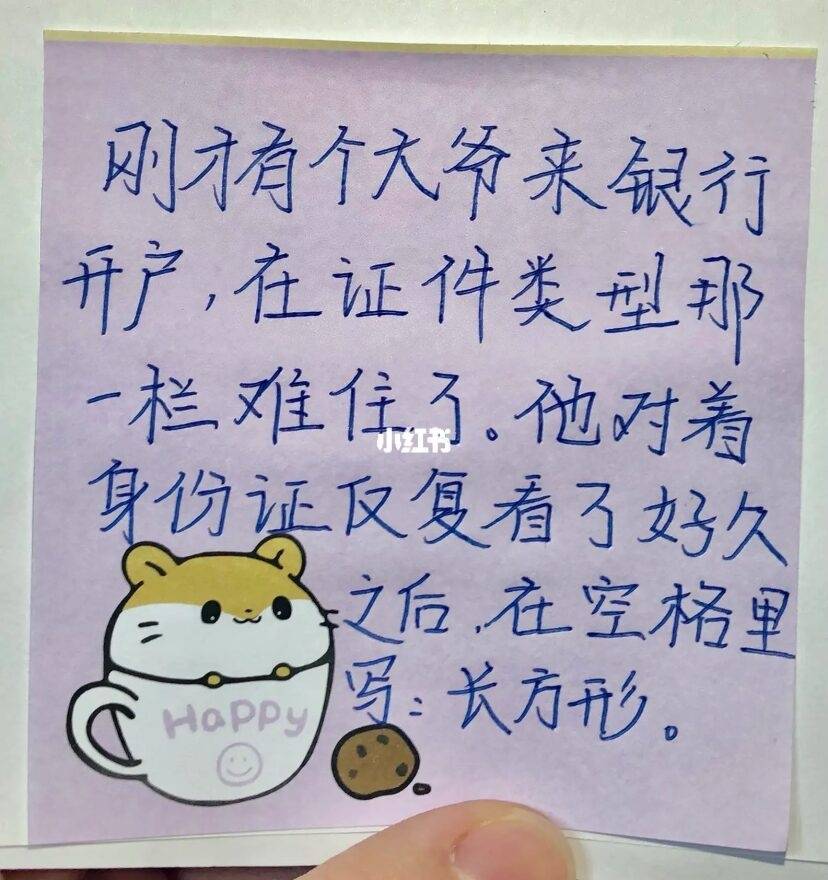 刚才有个大爷来银行
开户,在证件类型那
一栏难住了。他对着
小红书
身份证反复看了好久
之后,在空格里
写:长方形。
Happy